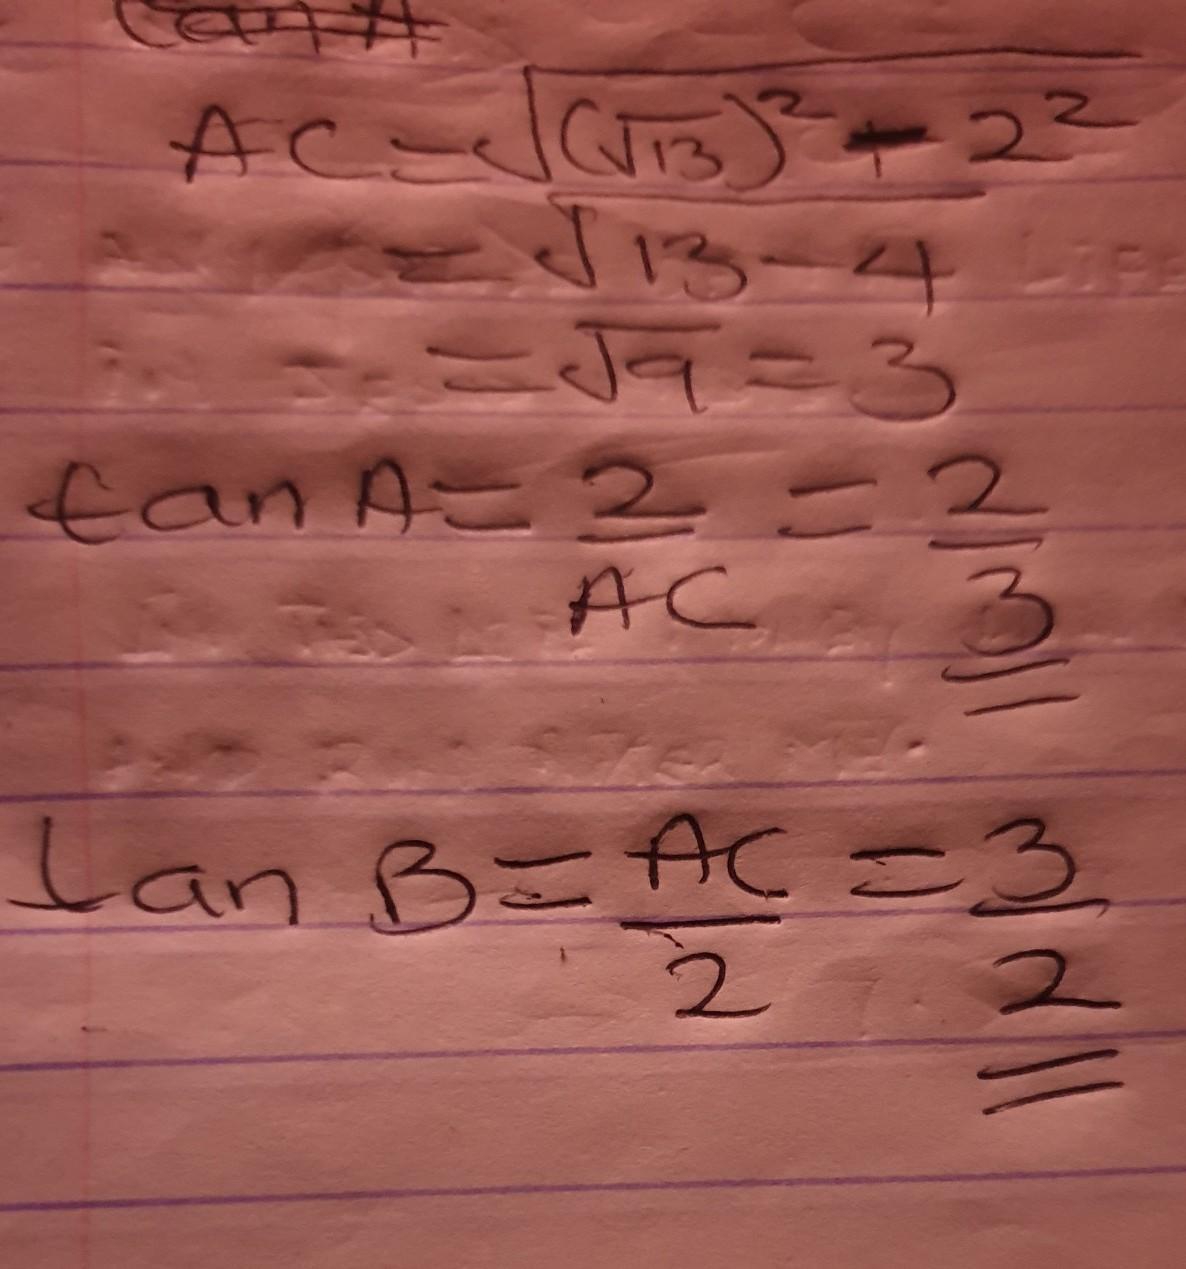 tan A
AC = √(√13)² - 2²
= √13 - 4
= √9 = 3
tan A = 2/AC = 2/3
tan B = AC/2 = 3/2